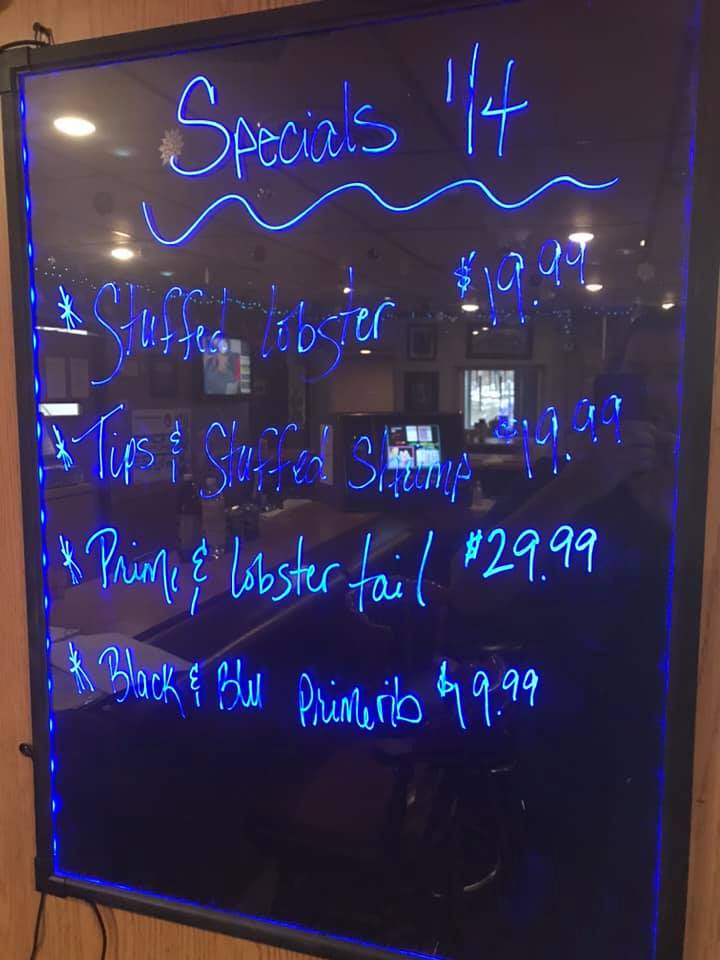 Specials 1/4
* Stuffed lobster $19.99
* Tips & Stuffed Shrimp $19.99
* Prime & lobster tail $29.99
* Black & Blu Primerib $19.99